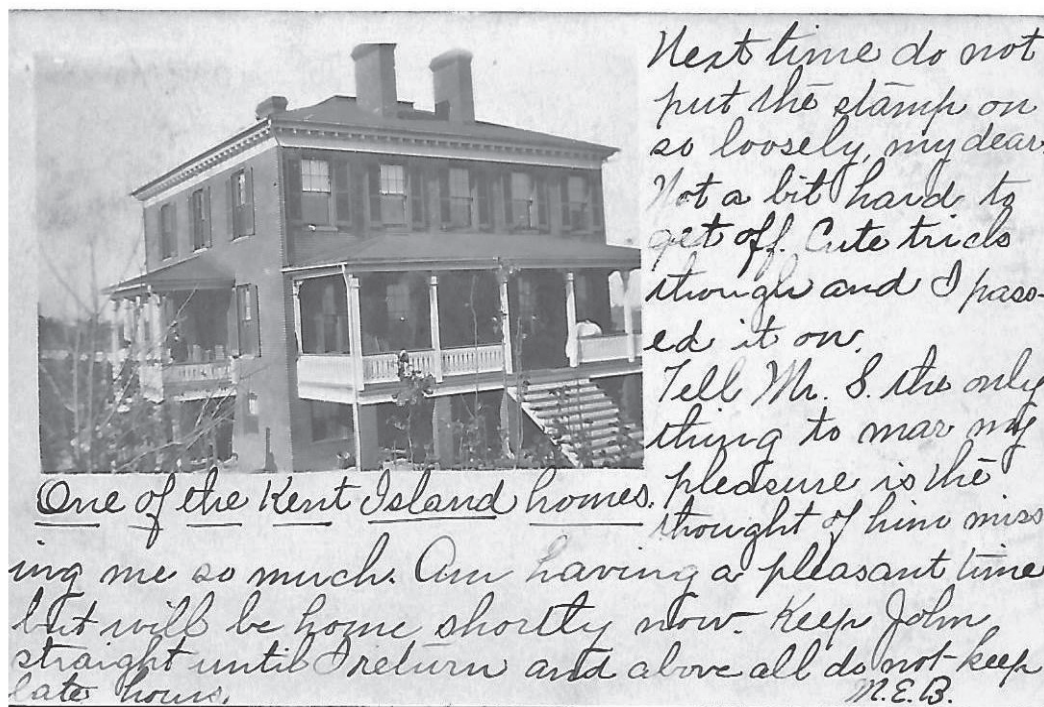 Next time do not
put the stamp on
so loosely, my dear.
Not a bit hard to
get off. Cute tricks
though and I pass-
ed it on.
Tell Mr. S. the only
thing to mar my
pleasure is the
thought of him miss
ing me so much. Am having a pleasant time
but will be home shortly now. Keep John
straight until I return and above all do not keep
late hours.
M.E.B.
One of the Kent Island homes.